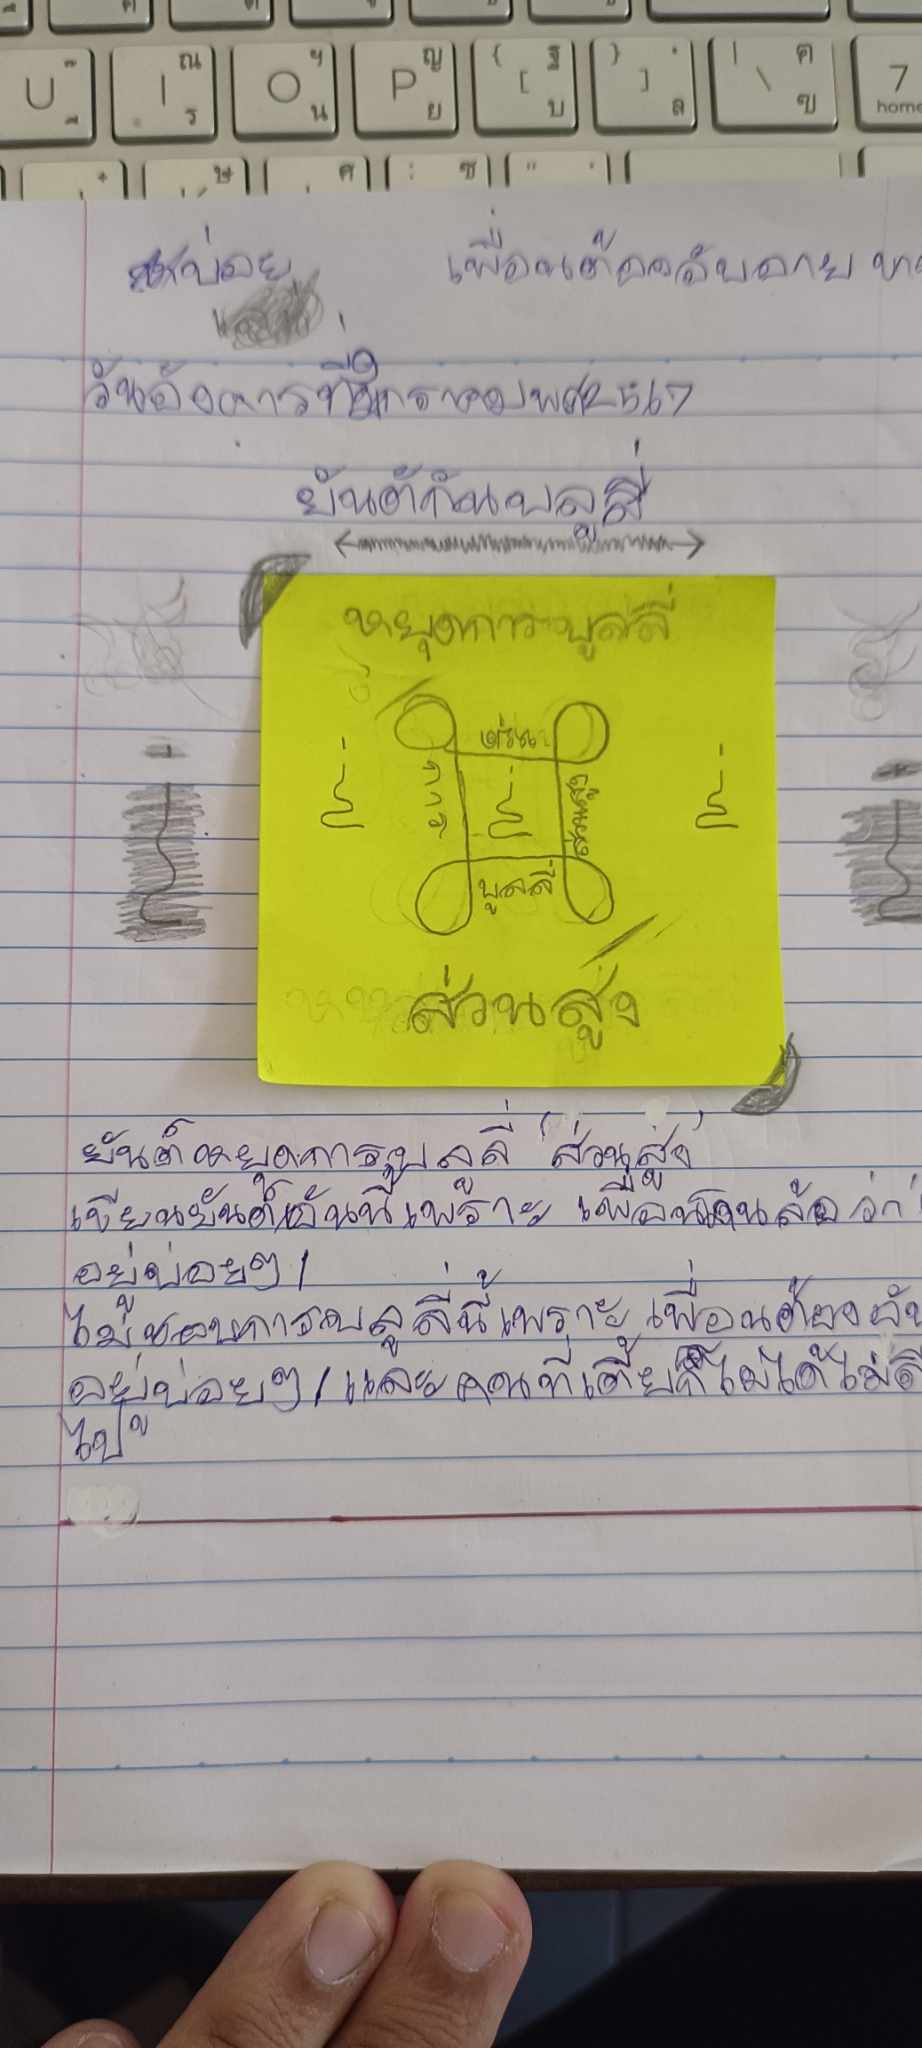 U ๊ ี
I ณ ร
O ฯ น
P ญ ย
{ [ ฐ บ
} ] ล
| \ ฅ ฃ
7 home
ษ
ศ
: ซ
"
บ่อย
เพื่อน
วันอังคารที่ มกราคม พศ2567
ยันต์กันบลูลี่
หยุดการบูลลี่
ส่วน
การ
ส่วนสูง
บูลลี่
ส่วนสูง
ยันต์หยุดการบูลลี่ 'ส่วนสูง'
เขียนยันต์อันนี้เพราะ เพื่อนโดนล้อว่า
อยู่บ่อยๆ/
ไม่ชอบการบลูลี่นี้เพราะ เพื่อนต้อง
อยู่บ่อยๆ/และคนที่เตี้ยก็ไม่ได้ไม่ดี
ไป